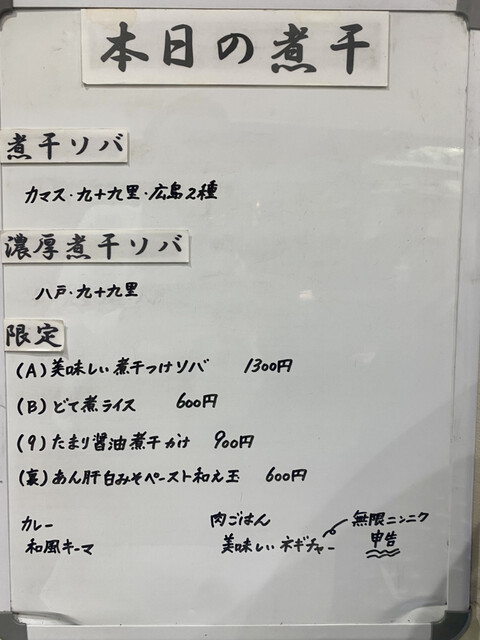 本日の煮干
煮干ソバ
カマス・九十九里・広島2種
濃厚煮干ソバ
八戸・九十九里
限定
(A)美味しい煮干つけソバ 1300円
(B)どて煮ライス 600円
(9)たまり醤油煮干かけ 900円
(裏)あん肝白みそペースト和え玉 600円
カレー
和風キーマ
肉ごはん
美味しいネギチャー
無限ニンニク
申告